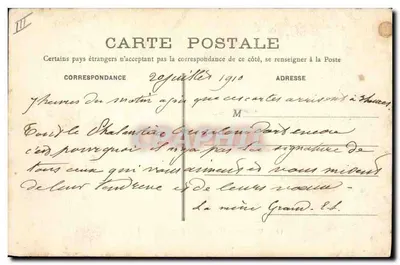 III
CARTE POSTALE
Certains pays étrangers n'acceptent pas la correspondance de ce côté, se renseigner à la Poste
CORRESPONDANCE
20 juillet 1910
ADRESSE
7 heures du matin que ces cartes arrivent à
M
Tout le dort encore
c'est pourquoi il n'y a pas la signature de
tous ceux qui vous aiment et vous
de leur tendresse et de leurs vœux
La mère Grand